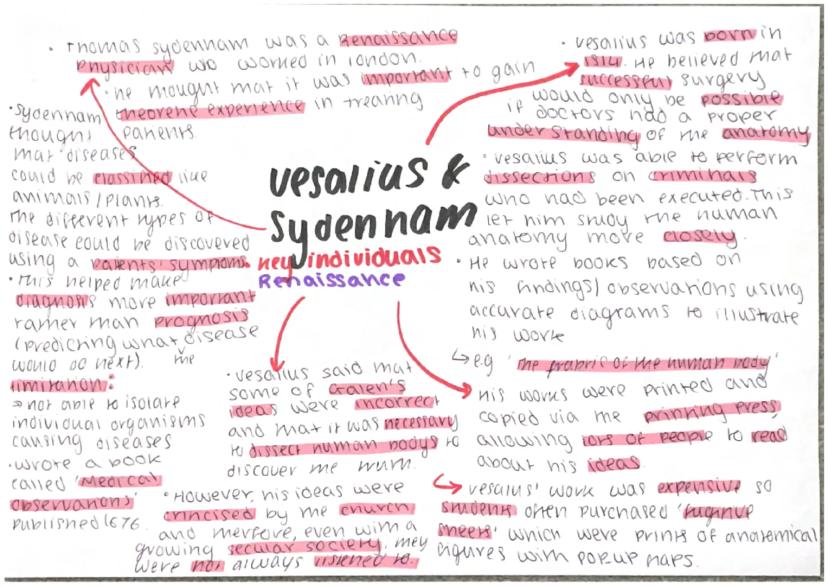 vesalius &
Sydenham
key individuals
Renaissance
• Thomas sydenham was a Renaissance
Physician wo worked in london.
• he thought that it was important to gain
theorene experience in treating
patients
• Sydenham
thought
that diseases
could be classified like
animals/plants.
The different types of
disease could be discovered
using a patents' symptoms.
• This helped make
diagnosis more important
rather than prognosis
(predicting what disease
would do next). the
limitation:
not able to isolate
individual organisms
causing diseases
• wrote a book
called 'Medical
observations'
published 1676.
• vesalius was born in
1514. He believed that
successful surgery
would only be possible
if doctors had a proper
understanding of the anatomy
• vesalius was able to perform
dissections on criminals
who had been executed. This
let him study the human
anatomy more closely.
• He wrote books based on
his findings/observations using
accurate diagrams to illustrate
his work
↳ e.g 'the frabric of the human body'
His works were printed and
copied via the printing press,
allowing lots of people to read
about his ideas.
vesalius' work was expensive so
students often purchased 'fugitive
sheets' which were prints of anatomical
figures with pop up flaps.
• vesalius said that
some of Galen's
ideas were incorrect
and that it was necessary
to dissect human bodys to
discover the truth.
• However, his ideas were
criticised by the church
and therfore, even with a
growing secular society, they
were not always listened to.